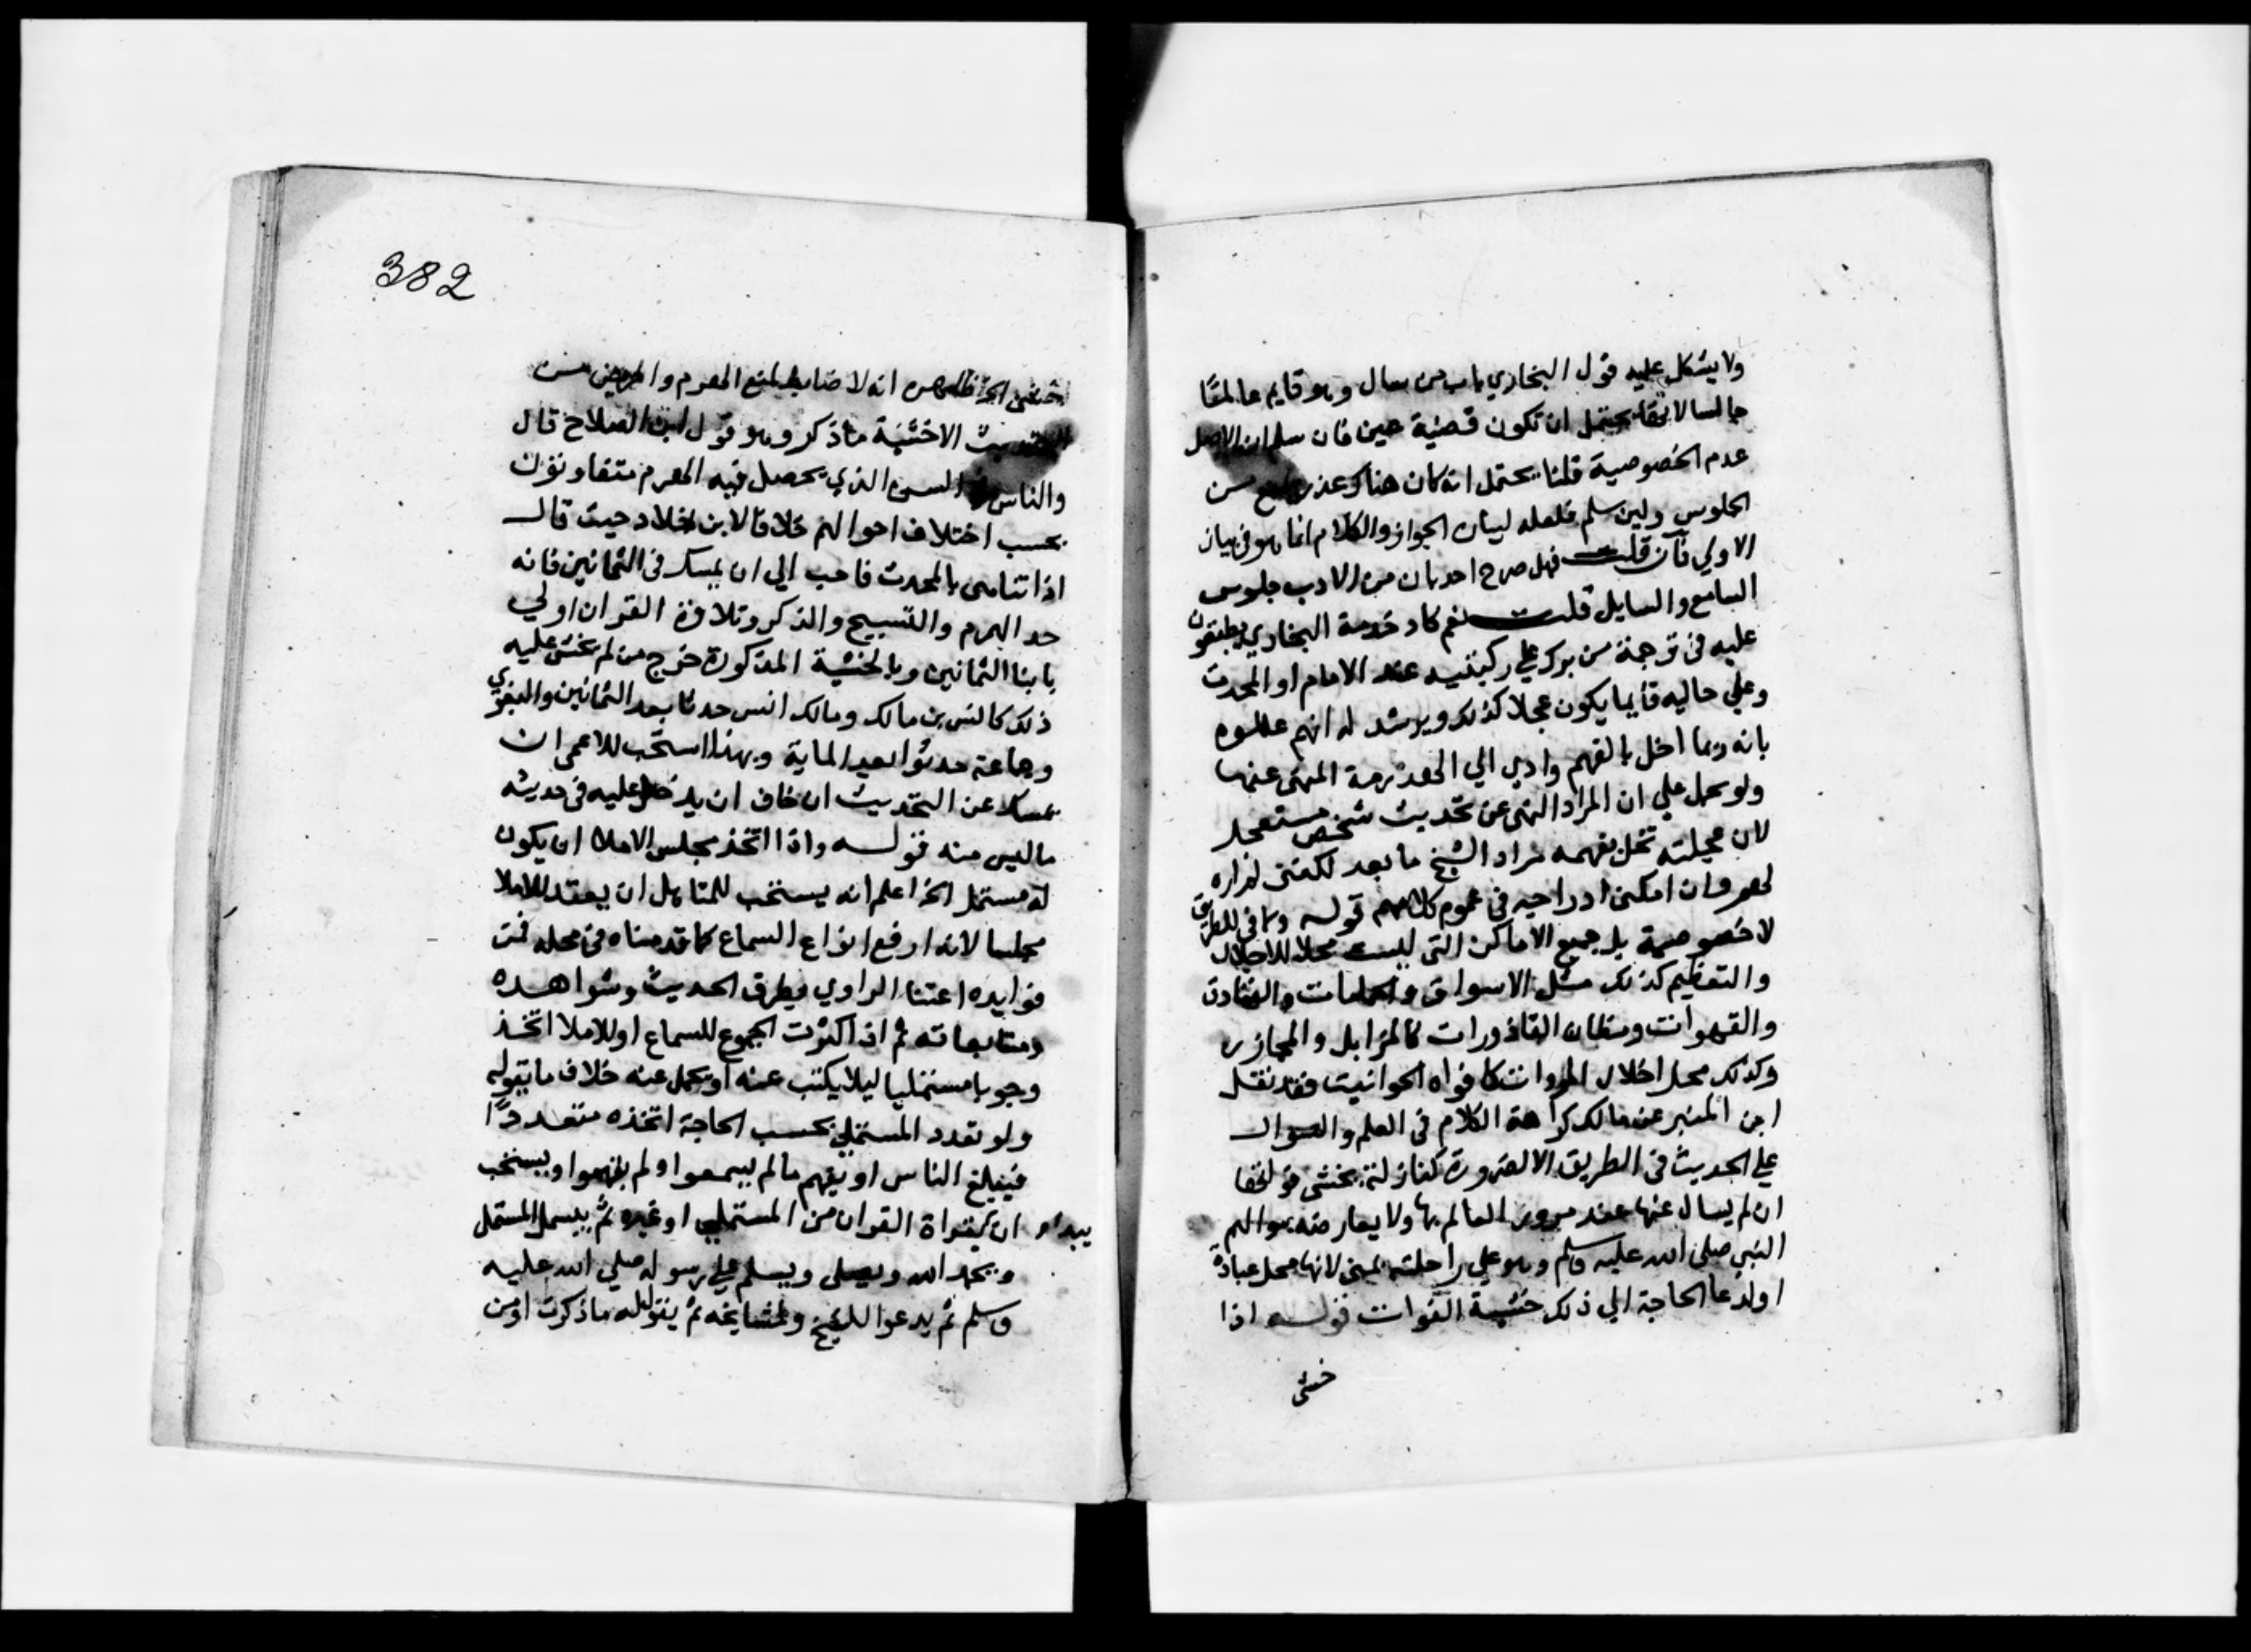 ولا يشكل عليه قول البخاري باب من سال وهو قايم عالما
جالسا لانقا يحتمل ان تكون قضية عين فان سلم ان الاصل
عدم الخصوصية قلنا يحتمل انه كان هناك عذر من
الجلوس ولين سلم فلعله لبيان الجواز والكلام انما هو في بيان
الاولي فان قلت فهل صرح احد بان من الادب جلوس
السامع والسايل قلت نعم كاد خدمة البخاري يطبقون
عليه في ترجمة من برك علي ركبتيه عند الامام او المحدث
وعلي حاليه قايما يكون عجلا كذلك ويرشد له انهم عللوه
بانه ربما اخل بالفهم وادي الي الهذرمة المنهى عنها
ولو حمل علي ان المراد النهى عن تحديث شخص مستعجل
لان عجلته تخل بفهمه مراد الشيخ ما بعد لكننى لم اره
لهم وان امكن ادراجه في عموم كلامهم قوله وما في الطريق
لا خصوصية بل جميع الاماكن التى ليست محلا للاجلال
والتعظيم كذلك مثل الاسواق والحمامات والفنادق
والقهوات ومظان القاذورات كالمزابل والمجازر
وكذلك محل اخلال المروات كافواه الحوانيت فقد نقل
ابن المنير عن مالك كراهة الكلام في العلم والسوال
علي الحديث في الطريق الا لضرورة كنازلة يخشى فواتها
ان لم يسال عنها عند مرور العالم بها ولا يعارضه سوالهم
النبي صلى الله عليه وسلم وهو علي راحلته بمنى لانها محل عبادة
او لدعا الحاجة الي ذلك خشية الفوات قوله اذا
خشى
382
خشى الخ ظاهره انه لا ضابط لمنع الهرم والمرض من
التحديث الا خشية ما ذكر وهو قول ابن الصلاح قال
والناس في السن الذي يحصل فيه الهرم متفاوتون
بحسب اختلاف احوالهم خلافا لابن خلاد حيث قال
اذا تناهى بالمحدث فاحب الي ان يمسك في الثمانين فانه
حد الهرم والتسبيح والذكر وتلاوة القران اولي
بابنا الثمانين وبالخشية المذكورة خرج من لم يخش عليه
ذلك كانس بن مالك ومالك انس حدثا بعد الثمانين والبغوي
وجماعة حدثوا بعد الماية وبهذا استحب للاعمى ان
يمسك عن التحديث ان خاف ان يدخل عليه في حديثه
ما ليس منه قوله واذا اتخذ مجلس الاملا ان يكون
له مستمل الخ اعلم انه يستحب للمتاهل ان يعقد للاملا
مجلسا لانه ارفع انواع السماع كما قدمناه في محله فمن
فوايده اعتنا الراوي بطرق الحديث وشواهده
ومتابعاته ثم اذا كثرت الجموع للسماع او للاملا اتخذ
وجوبا مستمليا ليلا يكتب عنه او يحمل عنه خلاف ما يقوله
ولو تعدد المستملي بحسب الحاجة اتخذه متعددا
فيبلغ الناس او يفهم ما لم يسمعوا ولم يفهموا ويستحب
يبداء ان بقراة القران من المستملي او غيره ثم يبسمل المستمل
ويحمد الله ويصلى ويسلم علي رسوله صلى الله عليه
وسلم ثم يدعوا للشيخ ولمشايخه ثم يقول له ما ذكرت او من